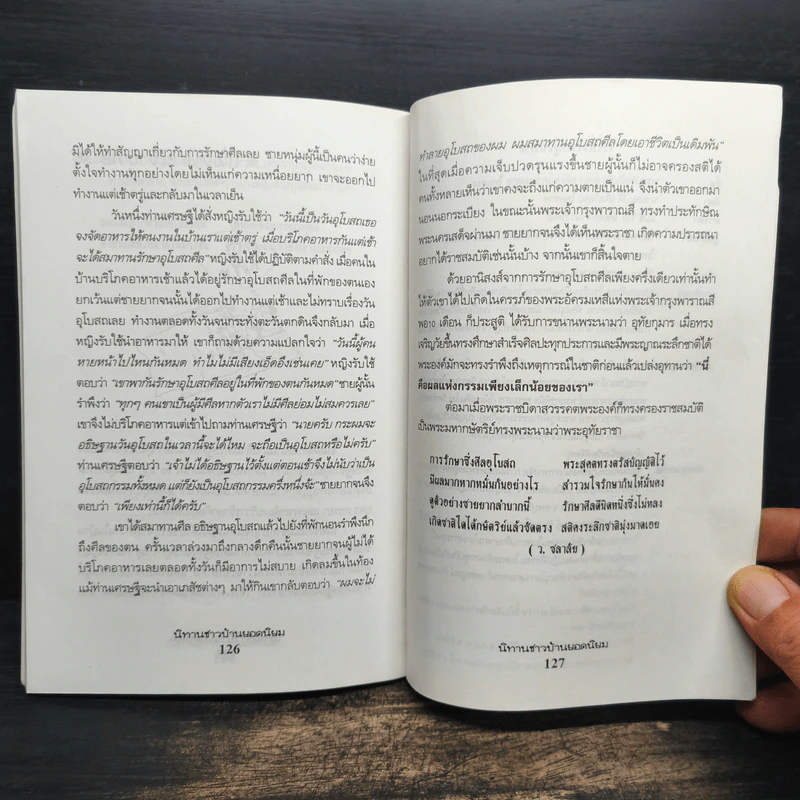 มิได้ให้ทำสัญญาเกี่ยวกับการรักษาศีลเลย ชายหนุ่มผู้นี้เป็นคนว่าง่าย
ตั้งใจทำงานทุกอย่างโดยไม่เห็นแก่ความเหนื่อยยาก เขาจะออกไป
ทำงานแต่เช้าตรู่และกลับมาในเวลาเย็น
วันหนึ่งท่านเศรษฐีได้สั่งหญิงรับใช้ว่า "วันนี้เป็นวันอุโบสถเธอ
จงจัดอาหารให้คนงานในบ้านเราแต่เช้าตรู่ เมื่อบริโภคอาหารกันแต่เช้า
จะได้สมาทานรักษาอุโบสถศีล" หญิงรับใช้ได้ปฏิบัติตามคำสั่ง เมื่อคนใน
บ้านบริโภคอาหารเช้าแล้วได้อยู่รักษาอุโบสถศีลในที่พักของตนเอง
ยกเว้นแต่ชายยากจนนั้นได้ออกไปทำงานแต่เช้าและไม่ทราบเรื่องวัน
อุโบสถเลย ทำงานตลอดทั้งวันจนกระทั่งตะวันตกดินจึงกลับมา เมื่อ
หญิงรับใช้นำอาหารมาให้ เขาก็ถามด้วยความแปลกใจว่า "วันนี้ผู้คน
หายหน้าไปไหนกันหมด ทำไมไม่มีเสียงเอ็ดอึงเช่นเคย" หญิงรับใช้
ตอบว่า "เขาพากันรักษาอุโบสถศีลอยู่ในที่พักของตนกันหมด" ชายผู้นั้น
รำพึงว่า "ทุกๆ คนเขาเป็นผู้มีศีลหากตัวเราไม่มีศีลย่อมไม่สมควรเลย"
เขาจึงไม่รับประทานอาหารแต่เข้าไปถามท่านเศรษฐีว่า "นายครับ กระผมจะ
อธิษฐานวันอุโบสถในเวลานี้จะได้ไหม จะถือเป็นอุโบสถหรือไม่ครับ"
ท่านเศรษฐีตอบว่า "เจ้าไม่ได้อธิษฐานไว้ตั้งแต่ตอนเช้าจึงไม่นับว่าเป็น
อุโบสถกรรมทั้งหมด แต่ก็ยังเป็นอุโบสถกรรมครึ่งหนึ่งจ้ะ" ชายยากจนจึง
ตอบว่า "เพียงเท่านี้ก็ได้ครับ"
เขาได้สมาทานศีล อธิษฐานอุโบสถแล้วไปยังที่พักนอนรำพึงนึก
ถึงศีลของตน ครั้นเวลาล่วงมาถึงกลางดึกคืนนั้นชายยากจนผู้ไม่ได้
บริโภคอาหารเลยตลอดทั้งวันก็มีอาการไม่สบาย เกิดลมขึ้นในท้อง
แม้ท่านเศรษฐีจะนำเอาเภสัชต่างๆ มาให้กินเขากลับตอบว่า "ผมจะไม่
นิทานชาวบ้านยอดนิยม
126
ทำลายอุโบสถของผม ผมสมาทานอุโบสถศีลโดยเอาชีวิตเป็นเดิมพัน"
ในที่สุดเมื่อความเจ็บปวดรุนแรงขึ้นชายผู้นั้นก็ไม่อาจครองสติได้
คนทั้งหลายเห็นว่าเขาคงจะถึงแก่ความตายเป็นแน่ จึงนำตัวเขาออกมา
นอนนอกระเบียง ในขณะนั้นพระเจ้ากรุงพาราณสี ทรงทำประทักษิณ
พระนครเสด็จผ่านมา ชายยากจนจึงได้เห็นพระราชา เกิดความปรารถนา
อยากได้ราชสมบัติเช่นนั้นบ้าง จากนั้นเขาก็สิ้นใจตาย
ด้วยอานิสงส์จากการรักษาอุโบสถศีลเพียงครึ่งเดียวเท่านั้นทำ
ให้ตัวเขาได้ไปเกิดในครรภ์ของพระอัครมเหสีแห่งพระเจ้ากรุงพาราณสี
พอ10 เดือน ก็ประสูติ ได้รับการขนานพระนามว่า อุทัยกุมาร เมื่อทรง
เจริญวัยขึ้นทรงศึกษาสำเร็จศิลปะทุกประการและมีพระญาณระลึกชาติได้
พระองค์มักจะทรงรำพึงถึงเหตุการณ์ในชาติก่อนแล้วเปล่งอุทานว่า "นี่
คือผลแห่งกรรมเพียงเล็กน้อยของเรา"
ต่อมาเมื่อพระราชบิดาสวรรคตพระองค์ก็ทรงครองราชสมบัติ
เป็นพระมหากษัตริย์ทรงพระนามว่าพระอุทัยราชา
การรักษาซึ่งศีลอุโบสถ พระสุคตทรงตรัสบัญญัติไว้
มีผลมากหากหมั่นกันอย่างไร สำรวมใจรักษากันให้มั่นคง
ดูตัวอย่างชายยากลำบากนี้ รักษาศีลดีนิดหนึ่งซึ่งไม่หลง
เกิดชาติใดได้กษัตริย์แล้วชัดตรง สติคงระลึกชาติมุ่งมาดเอย
( ว. ชลาลัย )
นิทานชาวบ้านยอดนิยม
127